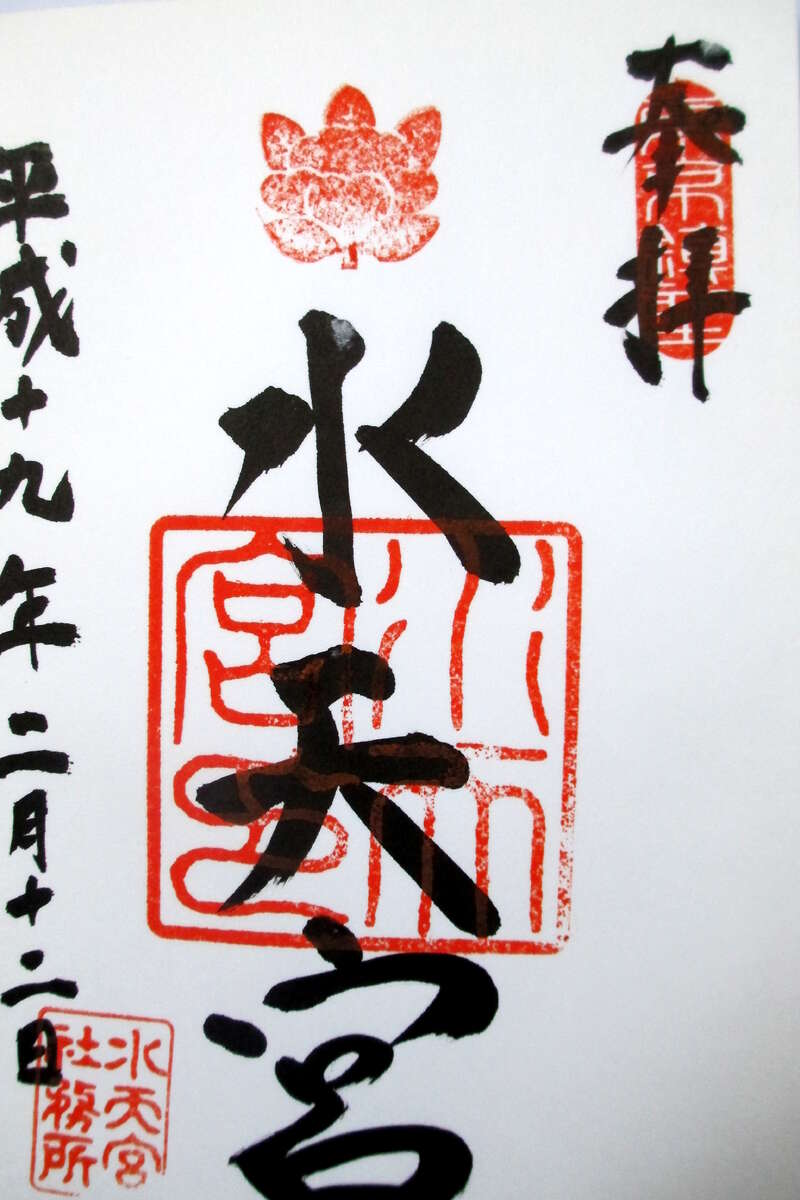 奉拝
水天宮
平成十九年二月十二日
水天宮
社務所